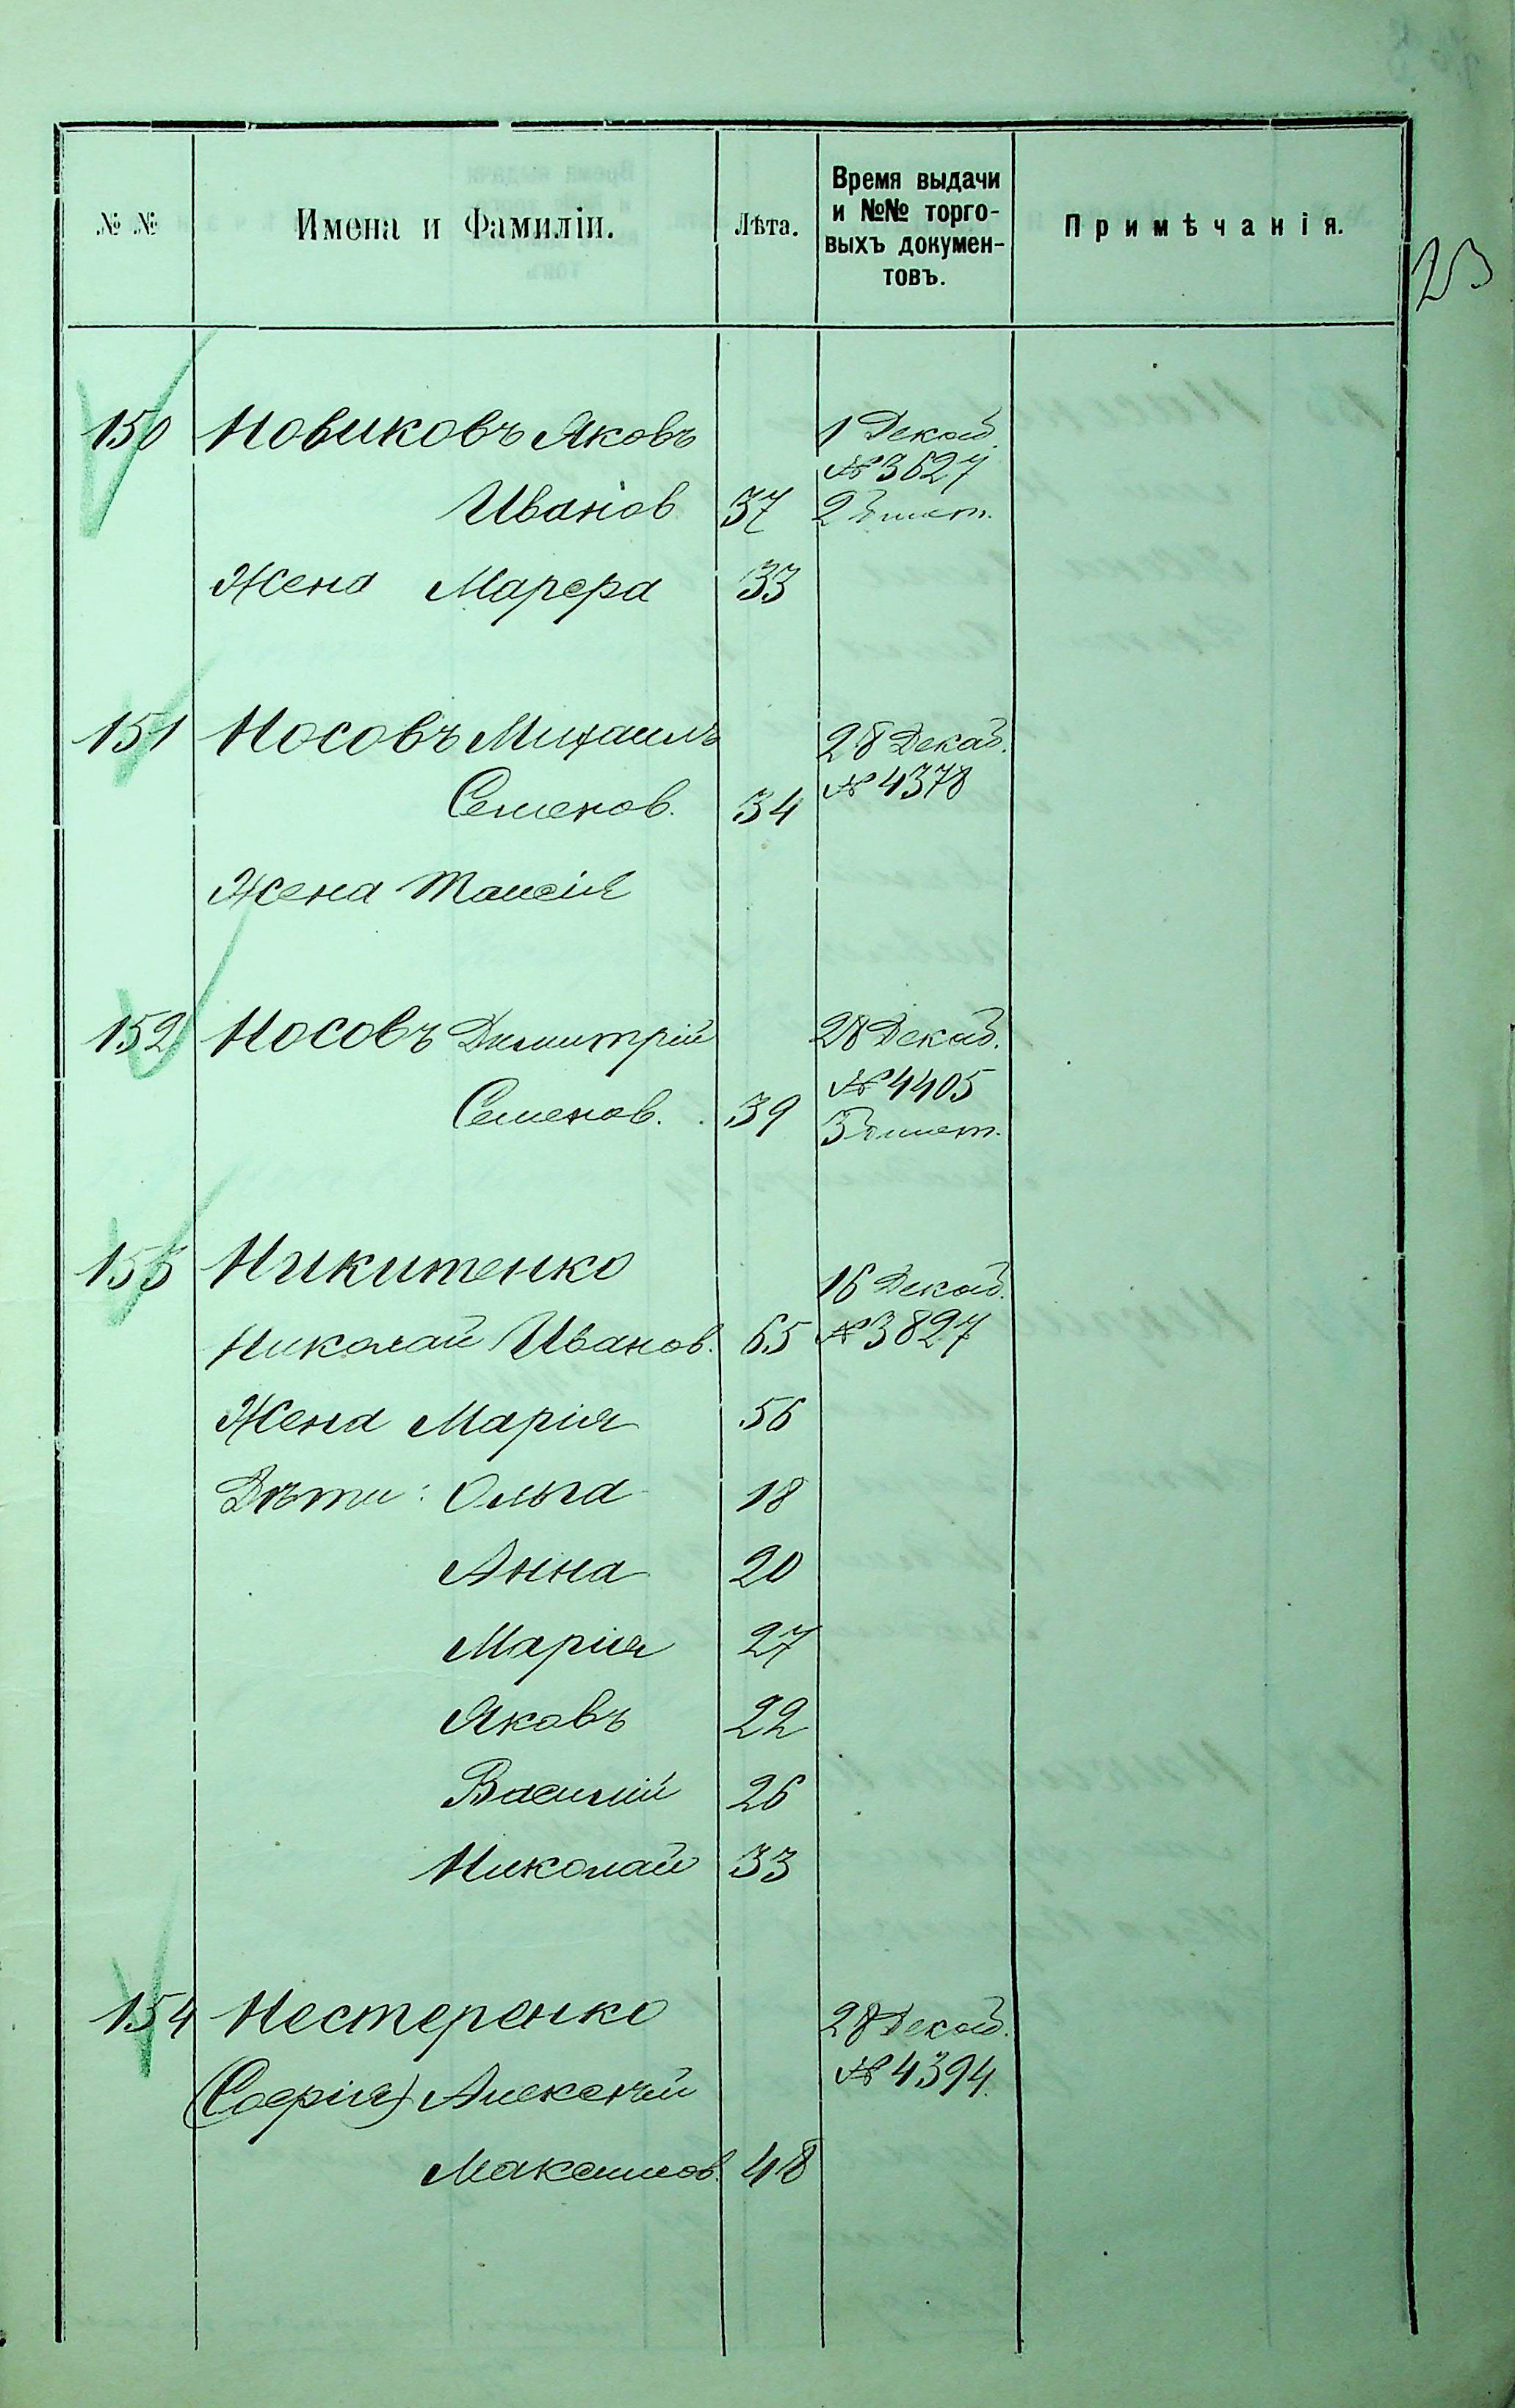 № №
Имена и Фамиліи.
Лѣта.
Время выдачи
и №№ торго-
выхъ докумен-
товъ.
Примѣчанія.
23
150 Новиковъ Яковъ 1 Декаб.
№ 3627
Иванов 37 2
Жена Марфа 33
151 Носовъ Михаилъ 28 Декаб.
Семенов. 34 № 4378
Жена Таисія
152 Носовъ Димитрій 28 Декаб.
№ 4405
Семенов. 39 3
153 Никитенко 16 Декаб.
Николай Иванов. 65 № 3827
Жена Марія 56
Дѣти: Ольга 18
Анна 20
Марія 27
Яковъ 22
Василій 26
Николай 33
154 Нестеренко 28 Декаб.
(Софія) Алексѣй № 4394.
Максимов. 48